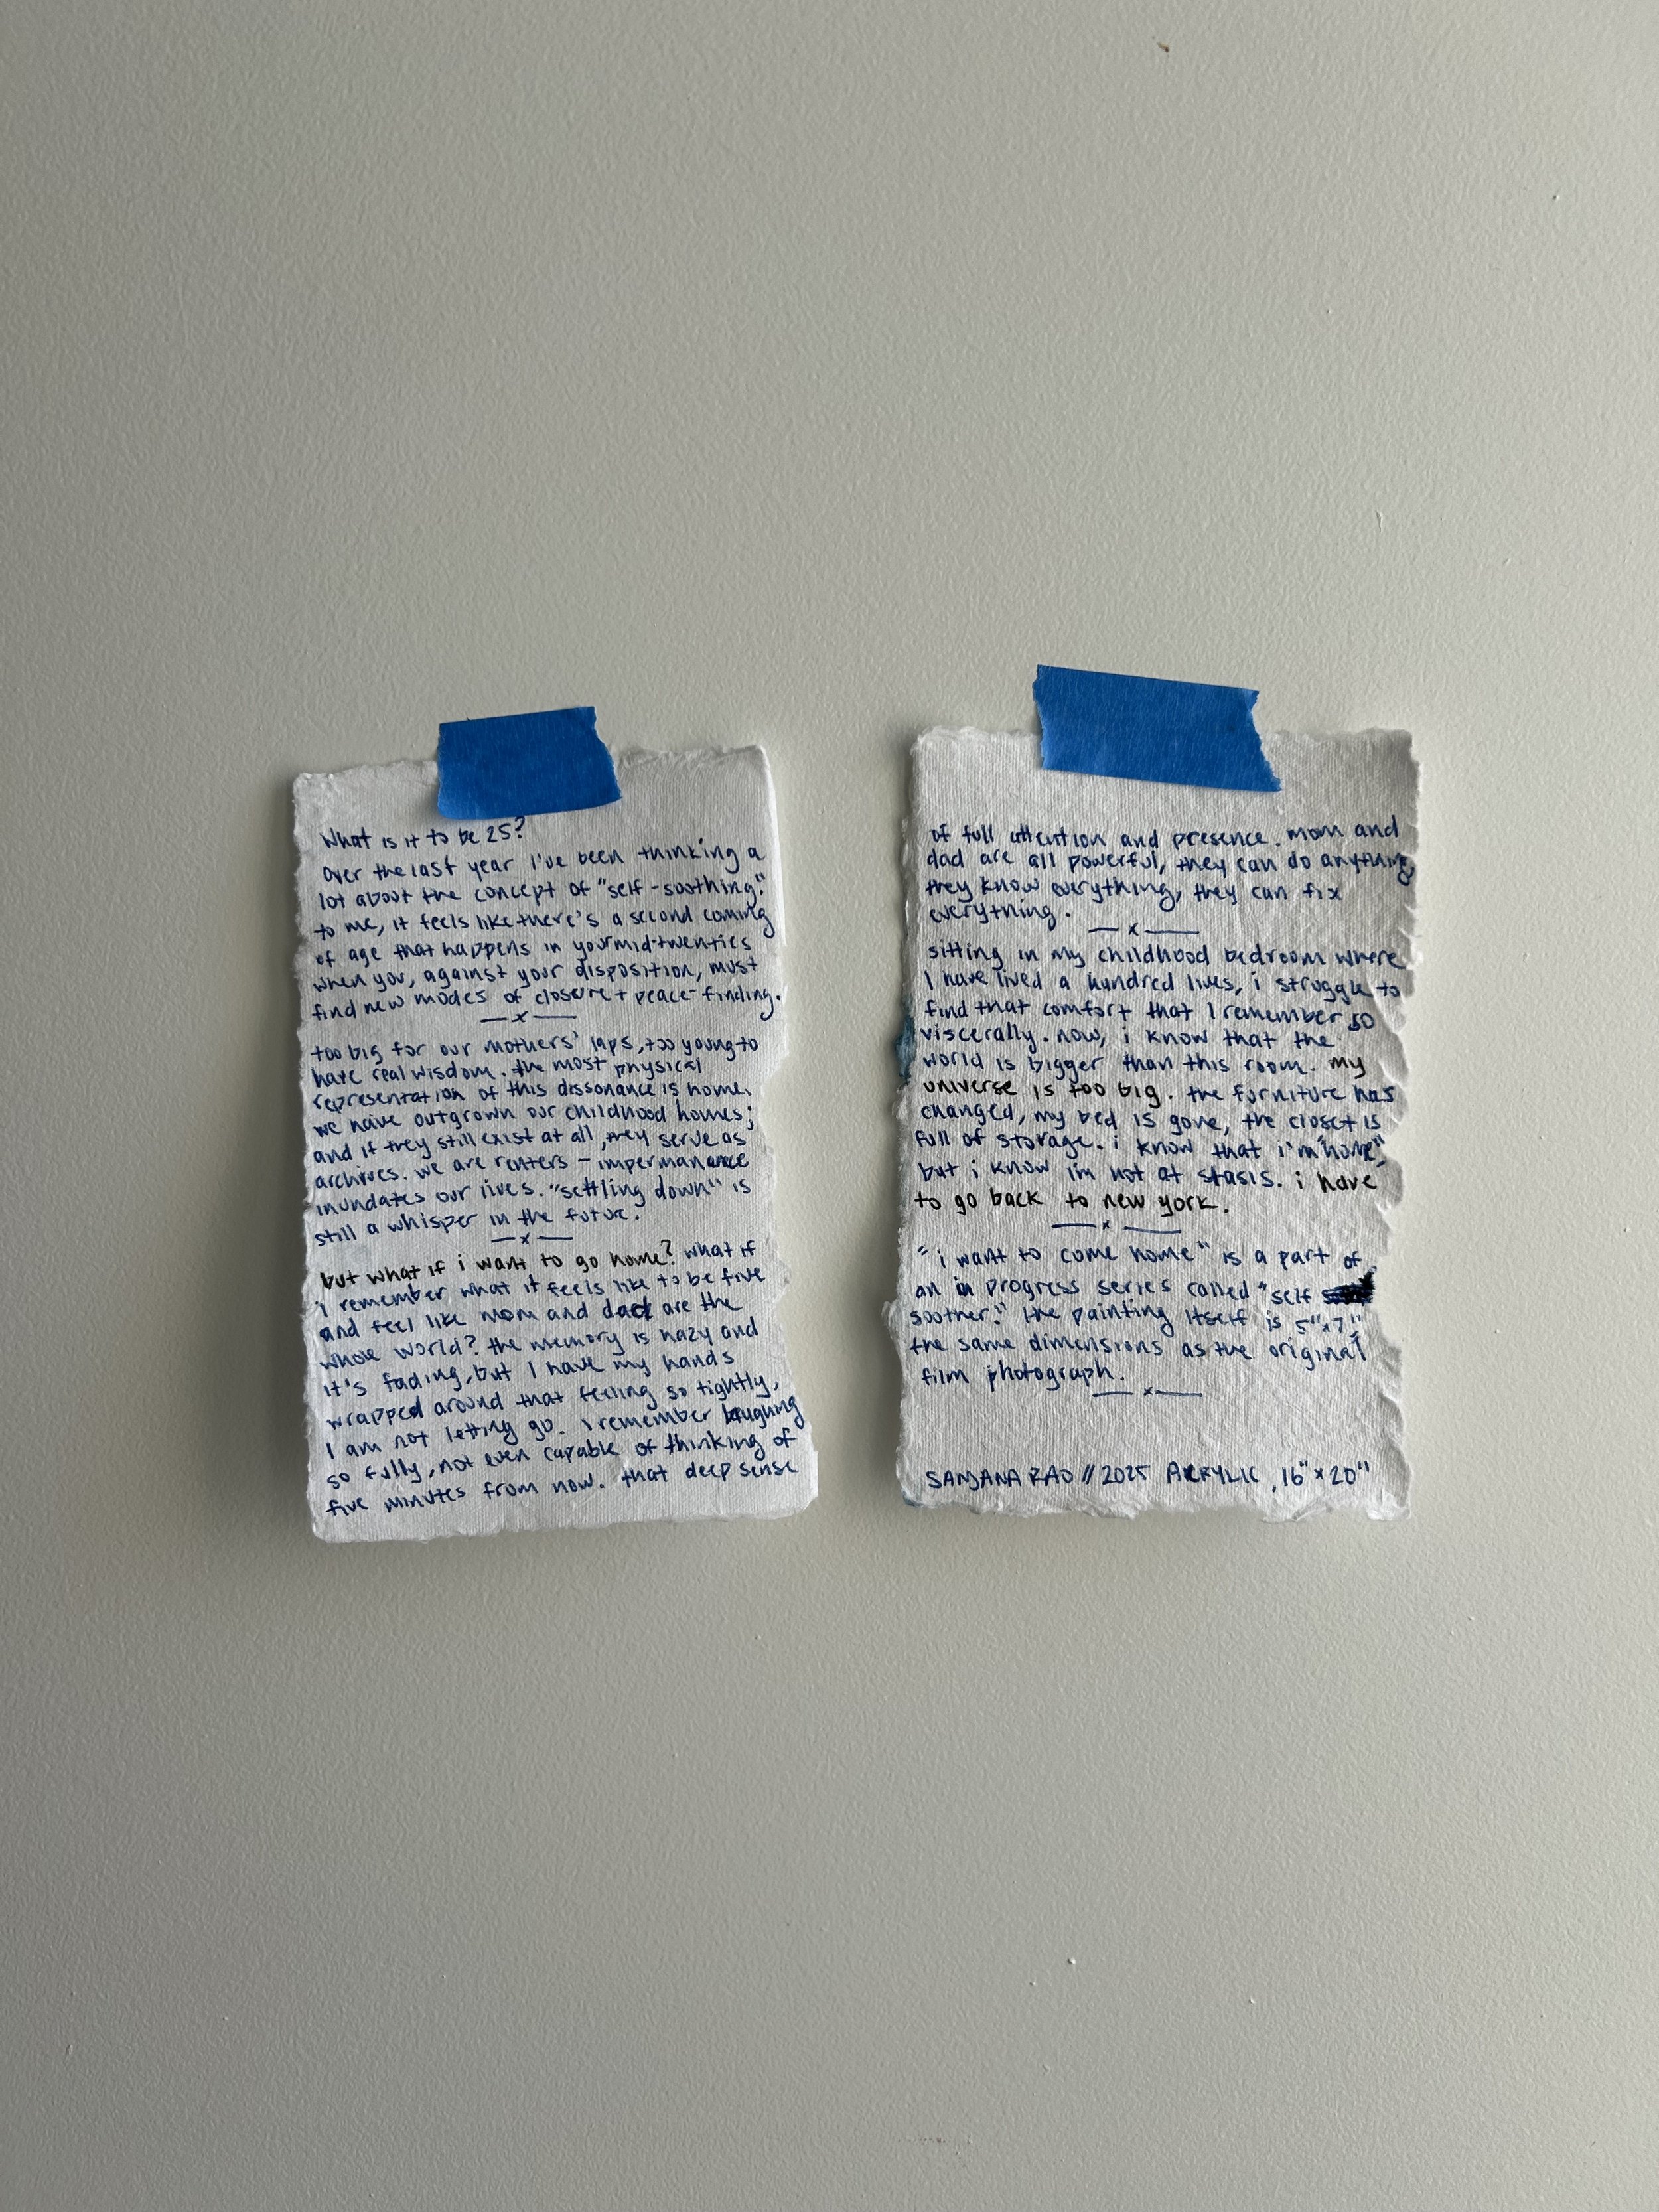 What is it to be 25?
Over the last year I've been thinking a
lot about the concept of "self-soothing."
to me, it feels like there's a second coming
of age that happens in your mid-twenties
when you, against your disposition, must
find new modes of closure + peace-finding.
—x—
too big for our mothers' laps, too young to
have real wisdom. the most physical
representation of this dissonance is home.
we have outgrown our childhood homes;
and if they still exist at all, they serve as
archives. we are renters - impermanance
inundates our lives. "settling down" is
still a whisper in the future.
—x—
but what if i want to go home? what if
i remember what it feels like to be five
and feel like mom and dad are the
whole world? the memory is hazy and
it's fading, but I have my hands
wrapped around that feeling so tightly,
I am not letting go. I remember laughing
so fully, not even capable of thinking of
five minutes from now. that deep sense
of full attention and presence. mom and
dad are all powerful, they can do anything
they know everything, they can fix
everything.
—x—
sitting in my childhood bedroom where
I have lived a hundred lives, i struggle to
find that comfort that I remember so
viscerally. now, i know that the
world is bigger than this room. my
universe is too big. the furniture has
changed, my bed is gone, the closet is
full of storage. i know that i'm "home,"
but i know i'm not at stasis. i have
to go back to new york.
—x—
"i want to come home" is a part of
an in progress series called "self
soother." the painting itself is 5"x7",
the same dimensions as the original
film photograph.
—x—
SANJANA RAO // 2025 ACRYLIC, 16" x 20"